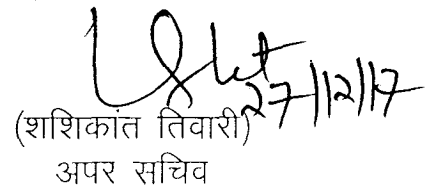 27/12/17
(शशिकांत तिवारी)
अपर सचिव